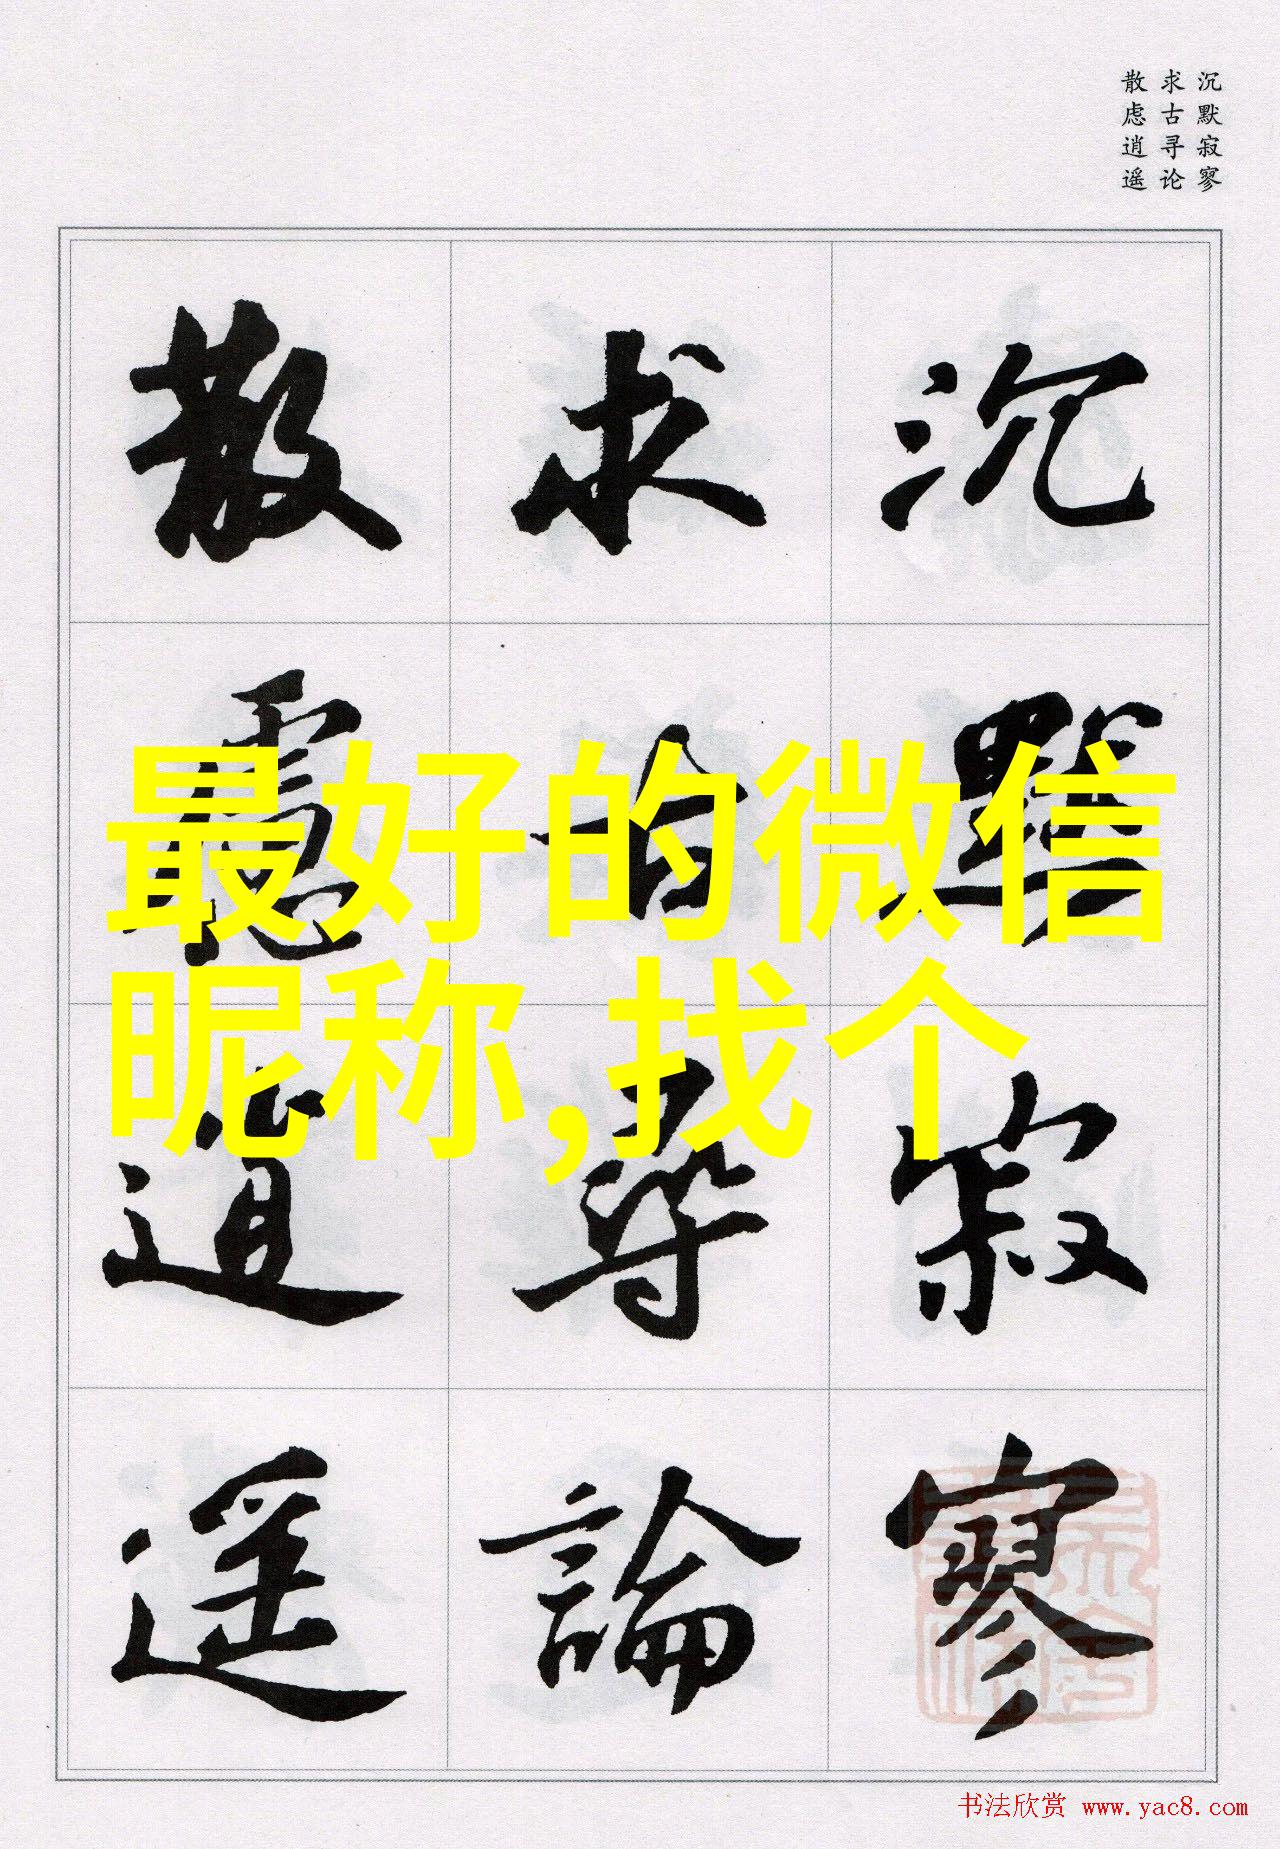 沉默寂寥
求古寻论
散虑逍遥
沉默寂寥
求古寻論
散慮逍遥
最好的微信
昵称,找个
书法欣赏 www.yac8.com